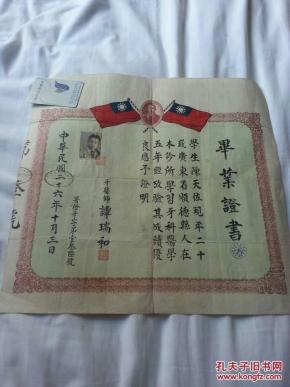 畢業證書
學生陳天佑現年二十
歲廣東省順德縣人在
本診所學習牙科醫學
五年經攷驗其成績優
良應予證明
牙醫師 譚瑞和
中華民國二十六年十月三日
孔夫子旧书网